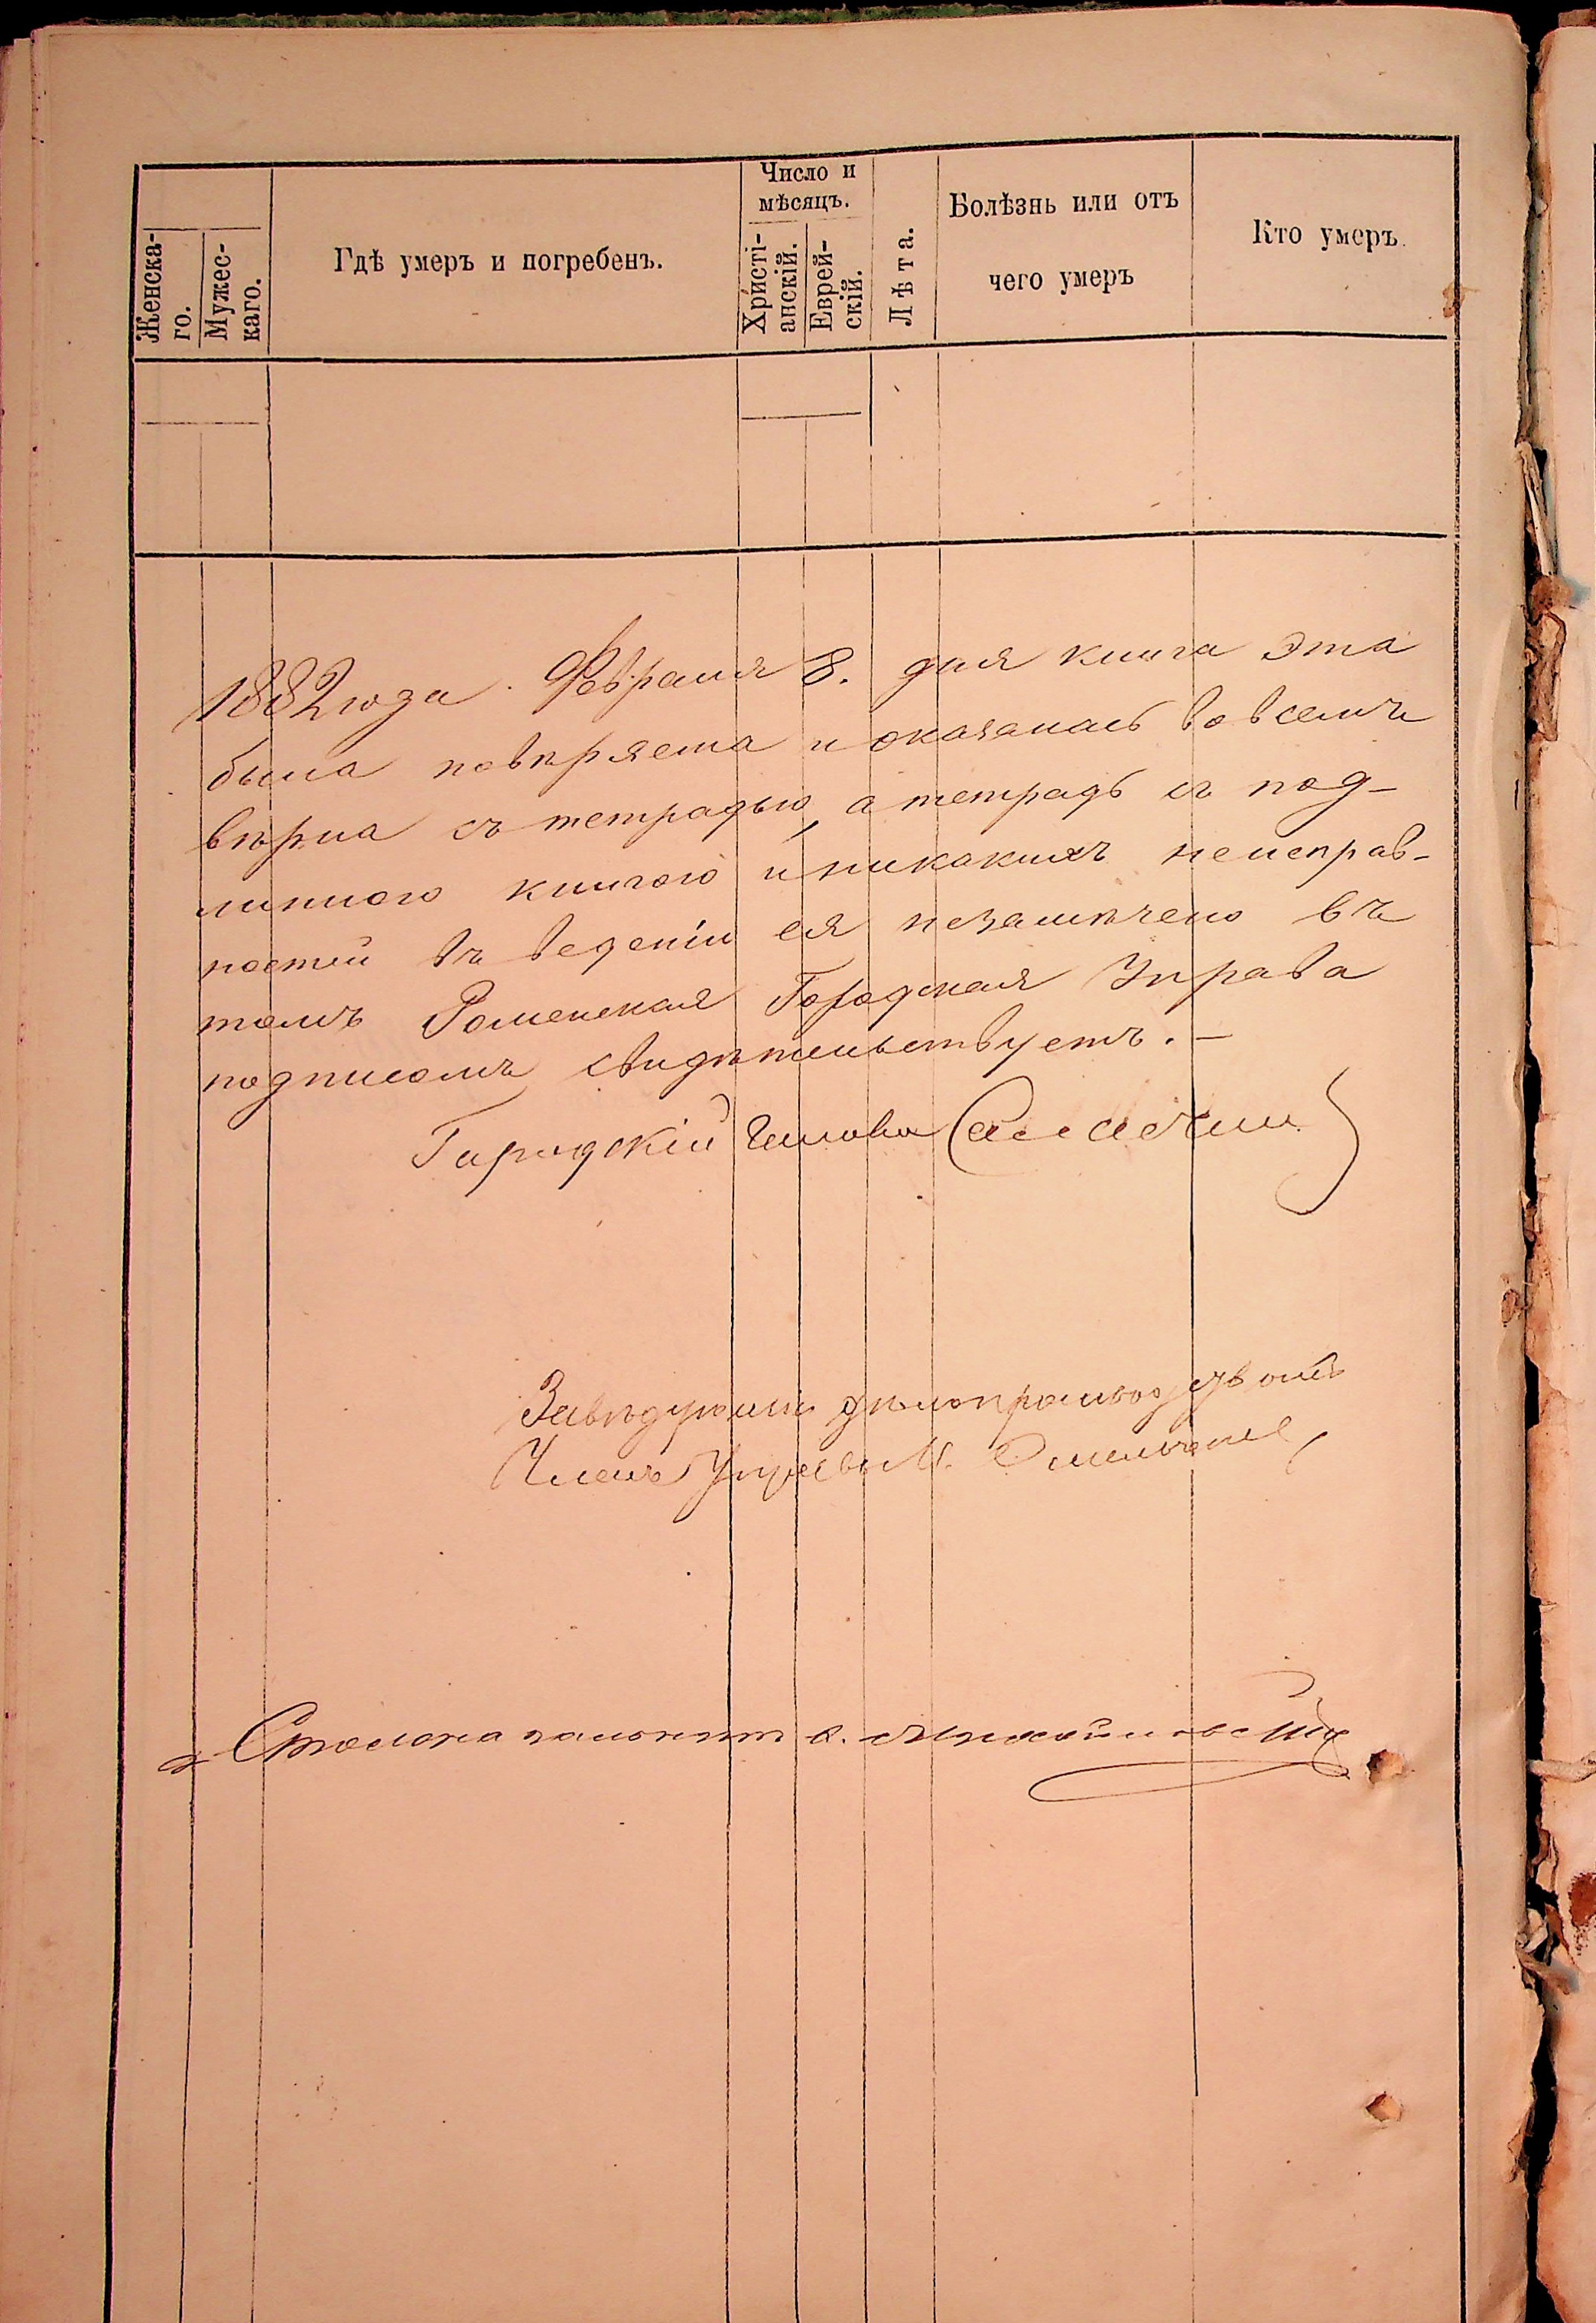 Число и
мѣсяцъ.
Женска-
го.
Мужес-
каго.
Гдѣ умеръ и погребенъ.
Христі-
анскій.
Еврей-
скій.
Лѣта.
Болѣзнь или отъ
чего умеръ
Кто умеръ
1882 года Февраля 8. дня книга эта
была повѣряема и оказалась во всемъ
вѣрна съ тетрадью, а тетрадь съ под-
линною книгою и никакихъ неисправ-
ностей въ веденіи ея незамѣчено въ
томъ Роменская Городская Управа
подписомъ свидѣтельствуетъ. —
Городскій Голова
Завѣдующій дѣлопроизводствомъ
Членъ Управы
Столоначальникъ